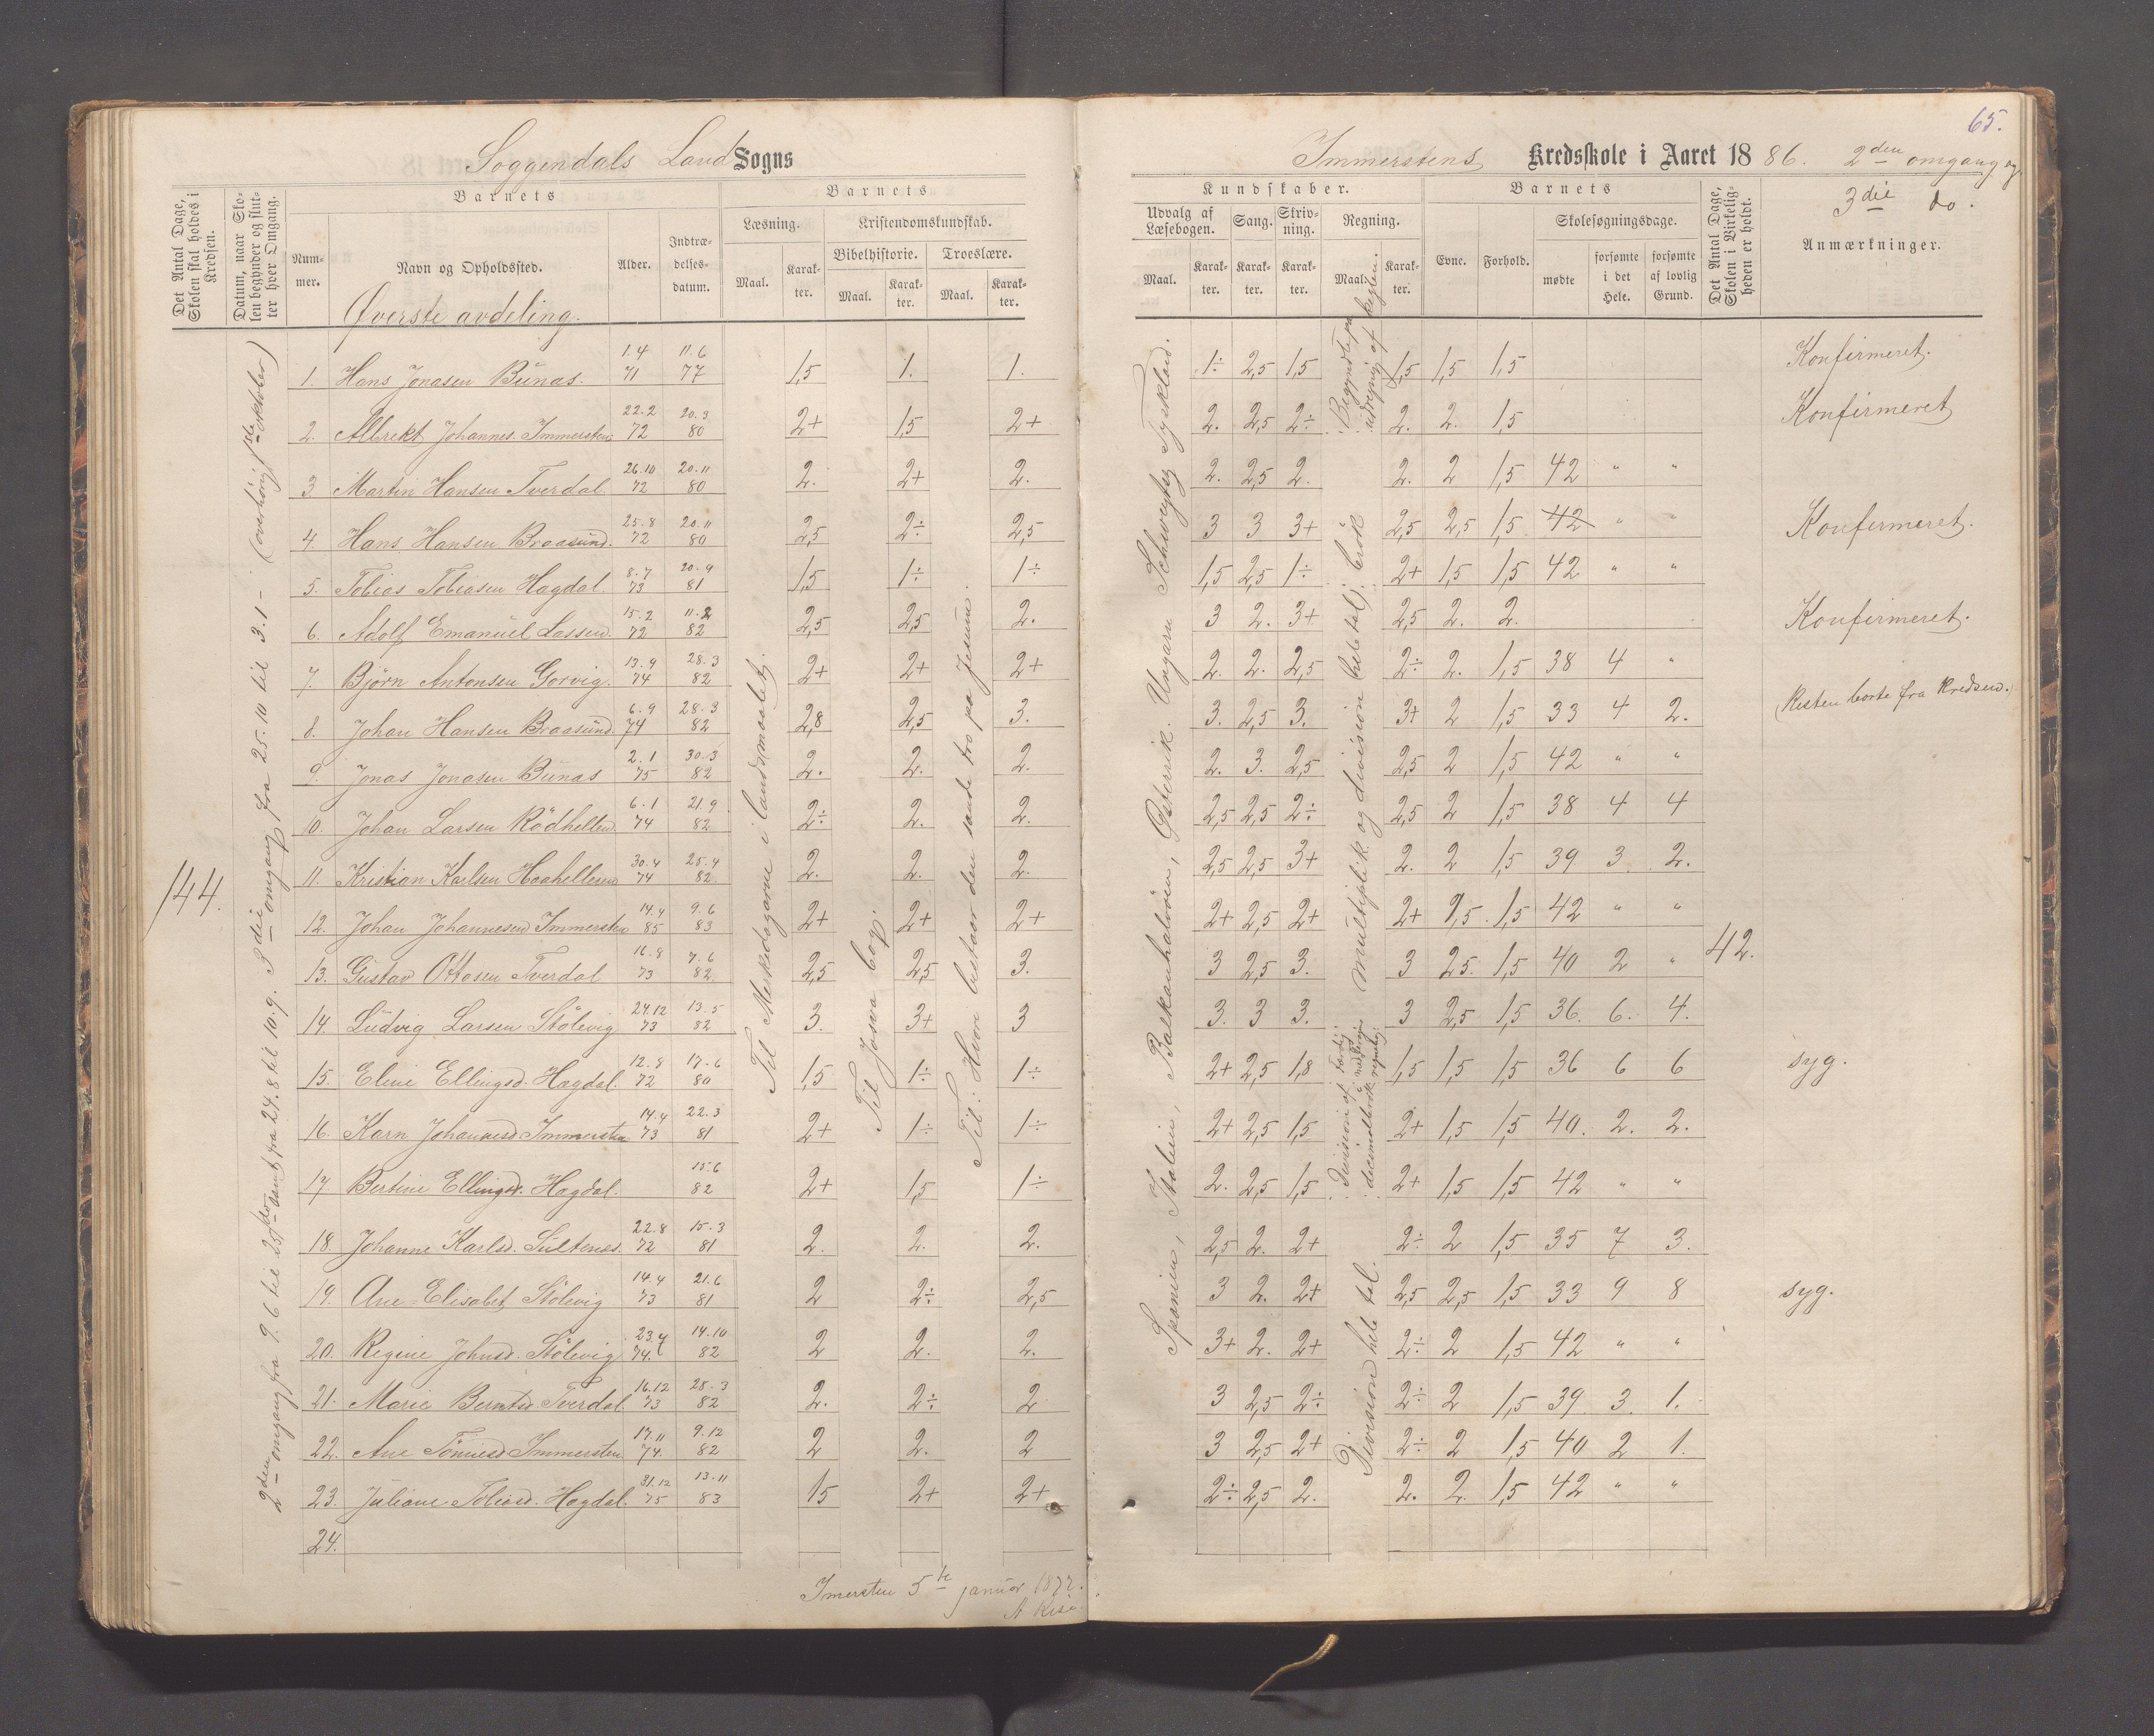 65.
Soggendals Land Sogns
Immerstens Kredsskole i Aaret 1886. 2den omgang og
3die do.
Det Antal Dage, Skolen skal holdes i Kredsen.
Datum, naar Skolen begynder og slutter hver Omgang.
Barnets
Nummer.
Navn og Opholdssted.
Alder.
Indtrædelsesdatum.
Barnets
Læsning.
Maal.
Karakter.
Kristendomskundskab.
Bibelhistorie.
Maal.
Karakter.
Troeslære.
Maal.
Karakter.
Kundskaber.
Udvalg af Læsebogen.
Maal.
Karakter.
Sang.
Karakter.
Skrivning.
Karakter.
Regning.
Maal.
Karakter.
Barnets
Evne.
Forhold.
Skolesøgningsdage.
mødte
forsømte i det Hele.
forsømte af lovlig Grund.
Det Antal Dage, Skolen i Virkeligheden er holdt.
Anmærkninger.
Øverste avdeling.
144.
2den omgang fra 9.6 til 25 samt fra 24.8 til 10.9. 3die omgang fra 25.10 til 3.1 - (overhøring 1ste oktober)
Til Merkedagarne i landsmaalet.
Til Josva bog.
Til: Hvori bestaar den sande tro paa Jesum.
Spanien, Italien, Balkanhalvöen, Østerrik. Ungarn Schweytz Tyskland.
Begyndte paa udregning af kuglen.
multiplik. og division hele tal i brøk
Division hele tal.
42.
1. Hans Jonasen Bunas. 1.4 71 11.6 77 1,5 1. 1. 1÷ 2,5 1,5 1,5 1,5 1,5 Konfirmeret.
2. Albrekt Johannes. Immersten 22.2 72 20.3 80 2+ 1,5 2+ 2. 2,5 2÷ 2. 2. 1,5 Konfirmeret
3 Martin Hansen Tverdal 26.10 72 20.11 80 2. 2+ 2. 2. 2,5 2. 2. 2 1,5 42 " "
4. Hans Hansen Braasund. 25.8 72 20.11 80 2,5 2÷ 2,5 3 3 3+ 2,5 2,5 1,5 42 " " Konfirmeret.
5. Tobias Tobiasen Hagdal. 8.7 73 20.9 81 1,5 1÷ 1÷ 1,5 2,5 1÷ 2+ 1,5 1,5 42 " "
6. Adolf Emanuel Lassen. 15.2 72 11.2 82 2,5 2,5 2. 3 2. 3+ 2,5 2. 2. Konfirmeret.
7. Björn Antonsen Gorvig. 13.9 74 28.3 82 2+ 2+ 2+ 2. 2. 2,5 2÷ 2. 1,5 38 4 "
8. Johan Hansen Braasund 6.9 74 28.3 82 2,8 2,5 3. 3. 2,5 3. 3+ 2 1,5 33 4 2. (Resten borte fra kredsen.
9. Jonas Jonasen Bunas 2.1 75 30.3 82 2. 2. 2. 2. 3. 2,5 2,5 2 1,5 42 " "
10. Johan Larsen Rödhellen. 6.1 74 21.9 82 2÷ 2. 2. 2,5 2,5 2÷ 2,5 2 1,5 38 4 4
11. Kristian Karlsen Haahelleren 30.4 74 25.4 82 2. 2. 2. 2,5 2,5 3+ 2. 2 1,5 39 3. 2.
12. Johan Johannesen Immersten 14.4 85 9.6 83 2+ 2+ 2+ 2+ 2,5 2+ 2+ 1,5 1,5 42 " "
13. Gustav Ottosen Tverdal 16.8 73 7.6 82 2,5 2,5 3. 3 2,5 3. 3 2,5. 1,5 40 2 "
14. Ludvig Larsen Stölevig 24.12 73 13.5 82 3. 3+ 3 3. 3 3. 3 2,5 1,5 36. 6. 4.
15. Eline Ellingsd. Hagdal. 12.8 72 17.6 80 1,5 1÷ 1÷ 2+ 2,5 1,8 1,5 1,5 1,5 36 6 6 syg.
16. Karn Johannesd. Immersten 14.4 73 22.3 81 2+ 1÷ 1÷ 2+ 2,5 1,5 2+ 1,5 1,5 40. 2. 2.
17. Bertine Ellingsd. Hagdal. 15.6 82 2+ 1,5 1÷ 2. 2,5 1,5 2+ 1,5 1,5 42 " "
18 Johanne Karlsd. Sultenes. 22.8 72 15.3 81 2. 2. 2. 2,5 2. 2+ 2÷ 2 1,5 35 7 3.
19. Ane Elisabet Stölevig 14.4 73 21.6 81 2 2÷ 2,5 3 2. 2+ 2,5 2,5 1,5 33 9 8 syg.
20. Regine Johnsd. Stölevig 23.4 74. 14.10 82 2 2. 2. 3+ 2. 2+ 2÷ 2 1,5 42 " "
21. Marie Berntsd. Tverdal 16.12 73 28.3 82 2. 2÷ 2 3 2,5 2÷ 2÷ 2 1,5 39 3. 1.
22. Ane Tönnesd. Immersten 17.11 74. 9.12 82 2 2. 2 3 2,5 2+ 2÷ 2 1,5 40 2 1.
23. Juliane Tobiasd. Hagdal. 31.12 75 13.11 83 15 2+ 2+ 2÷ 2,5 2. 2. 2. 1,5 42 " "
24.
Imersten 5te januar